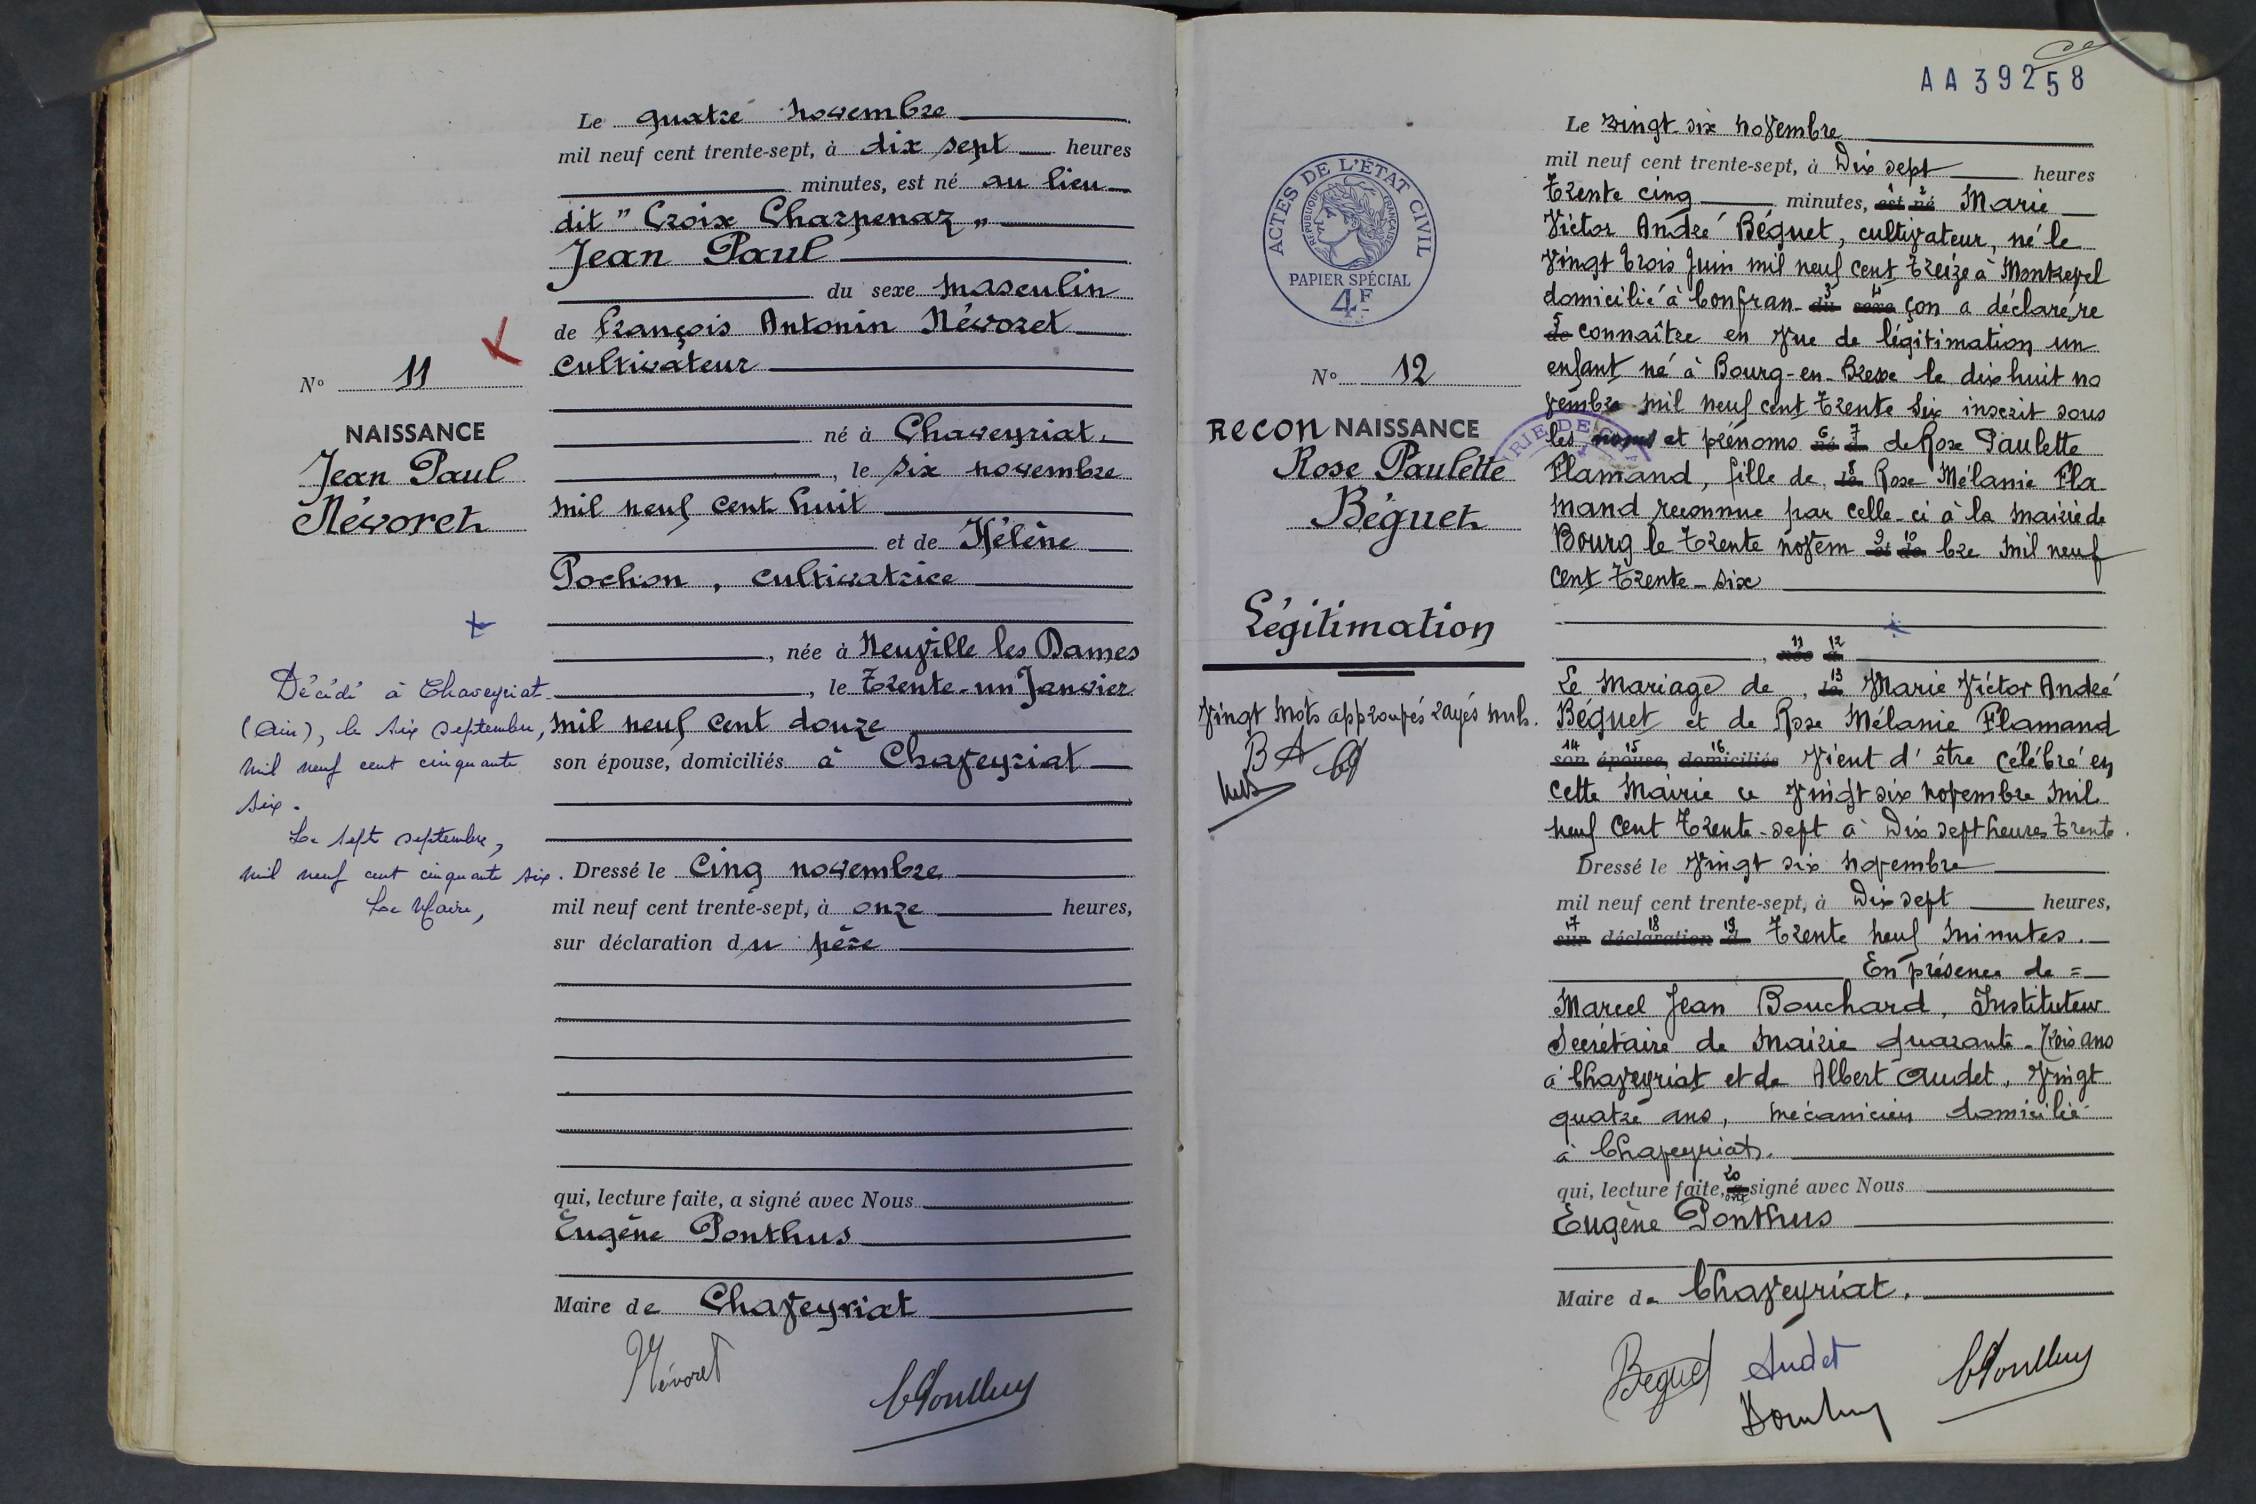 Le quatre novembre
mil neuf cent trente-sept, à dix sept heures
minutes, est né au lieu
dit "Croix Charpenaz"
Jean Paul
du sexe masculin
de François Antonin Névoret
cultivateur
N° 11
NAISSANCE
Jean Paul
Névoret
né à Chaveyriat,
, le six novembre
mil neuf cent huit
et de Hélène
Pochon, cultivatrice
, née à Neuville les Dames
, le trente-un Janvier
mil neuf cent douze
son épouse, domiciliés à Chaveyriat
Dressé le cinq novembre
mil neuf cent trente-sept, à onze heures,
sur déclaration du père
qui, lecture faite, a signé avec Nous
Eugène Ponthus
Maire de Chaveyriat
Névoret
EPonthus
Décédé à Chaveyriat
(Ain), le six septembre,
mil neuf cent cinquante
six.
Le sept septembre,
mil neuf cent cinquante six.
Le Maire,
AA39258
ACTES DE L'ÉTAT CIVIL
RÉPUBLIQUE FRANÇAISE
PAPIER SPÉCIAL
4F
N° 12
RECONNAISSANCE
Rose Paulette
Béguet
Légitimation
Vingt mots approuvés rayés nuls.
BA
Le vingt-six novembre
mil neuf cent trente-sept, à Dix sept heures
trente cinq minutes, est né Marie
Victor André Béguet, cultivateur, né le
vingt trois Juin mil neuf cent treize à Montrevel
domicilié à Confran du sexe çon a déclaré re
de connaître en vue de légitimation un
enfant né à Bourg-en-Bresse le dix huit no
vembre mil neuf cent trente six inscrit sous
les noms et prénoms né à de Rose Paulette
Flamand, fille de le Rose Mélanie Fla
mand reconnue par celle-ci à la mairie de
Bourg le trente novem et de bre mil neuf
cent trente-six
, née à
Le mariage de , le Marie Victor André
Béguet et de Rose Mélanie Flamand
son épouse, domiciliés vient d'être célébré en
cette Mairie ce vingt six novembre mil
neuf cent trente-sept à Dix sept heures trente.
Dressé le vingt six novembre
mil neuf cent trente-sept, à Dix sept heures,
sur déclaration d trente neuf minutes.
En présence de =
Marcel Jean Bouchard, Instituteur
Secrétaire de mairie quarante-trois ans
à Chaveyriat et de Albert Audet, vingt
quatre ans, mécanicien domicilié
à Chaveyriat.
qui, lecture faite, a ont signé avec Nous
Eugène Ponthus
Maire de Chaveyriat.
Beguet Audet EPonthus